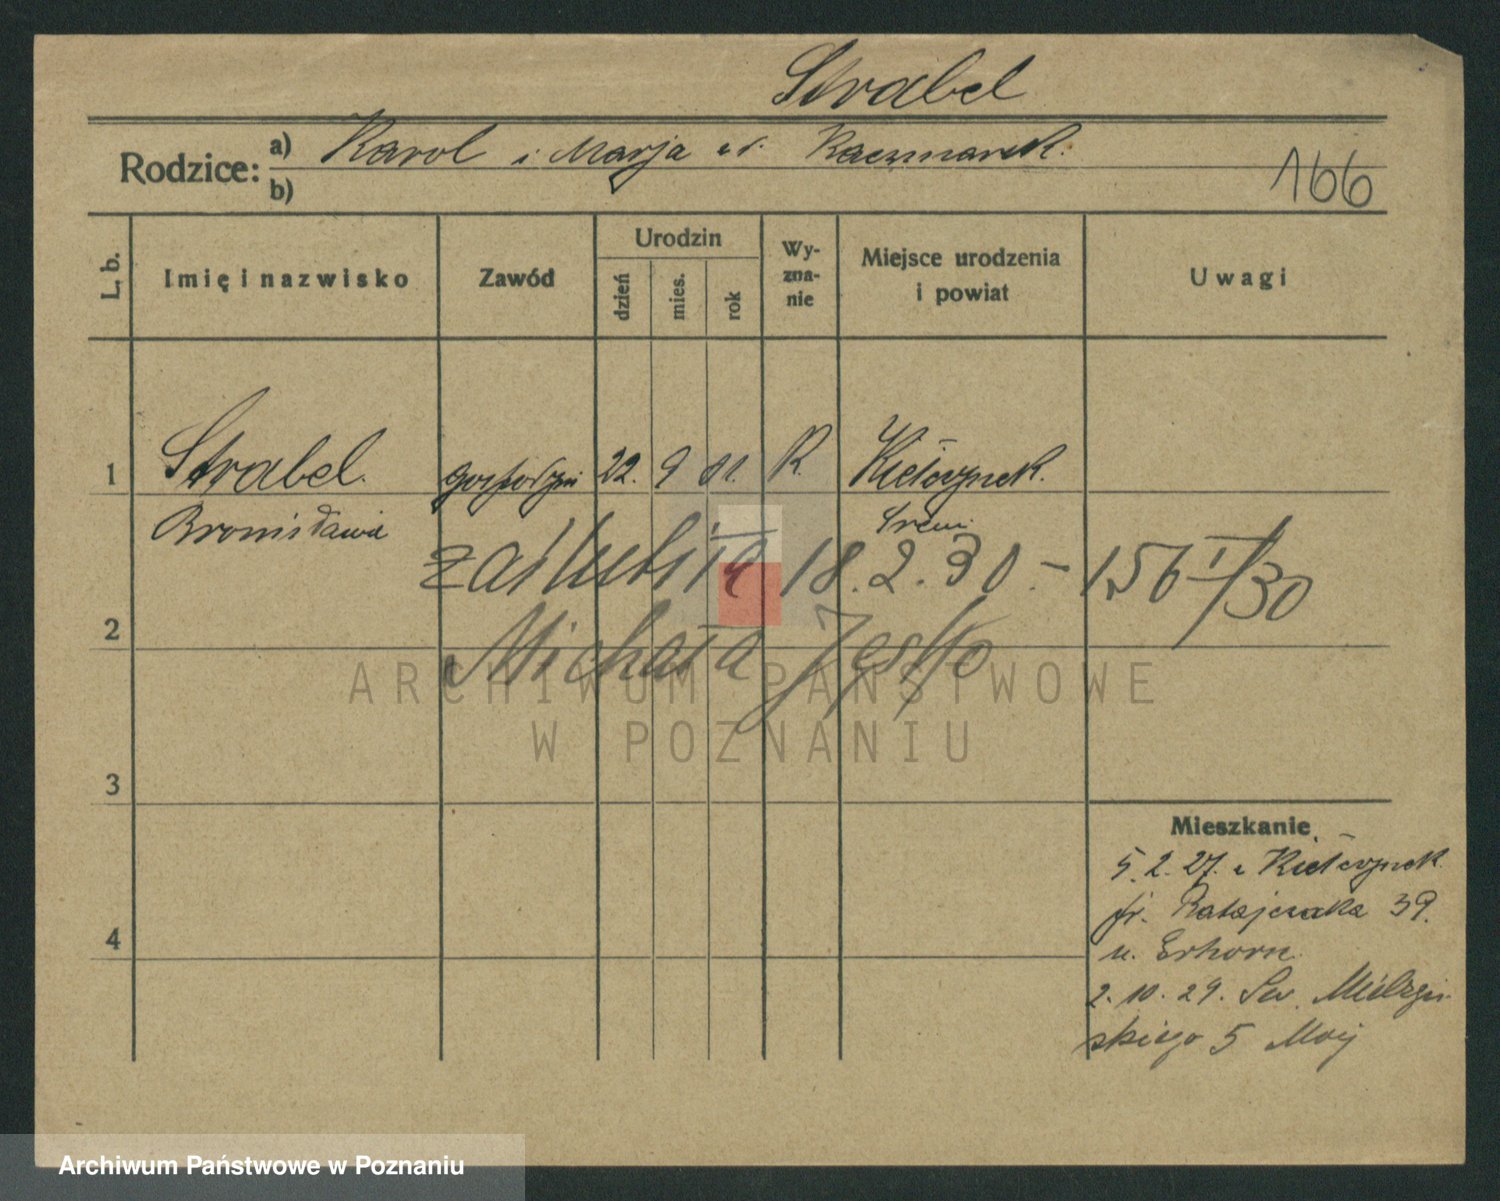 Strabel
Rodzice: a) Karol i Marja z d. Kaczmarek.
b)
166
L. b.
Imię i nazwisko
Zawód
Urodzin
dzień mies. rok
Wy-
zna-
nie
Miejsce urodzenia
i powiat
Uwagi
1 Strabel. 22. 9 01. R. Kiełczynek.
Bronisława Śrem.
zaślubiła 18.2.30. - 156 /30
2 Michała
3
4
ARCHIWUM PAŃSTWOWE
W POZNANIU
Mieszkanie
5.2.27. z Kiełczynek
fr. Ratajczaka 39.
u. Erhorn
2.10.29. Sew. Mielżyń-
skiego 5
Archiwum Państwowe w Poznaniu